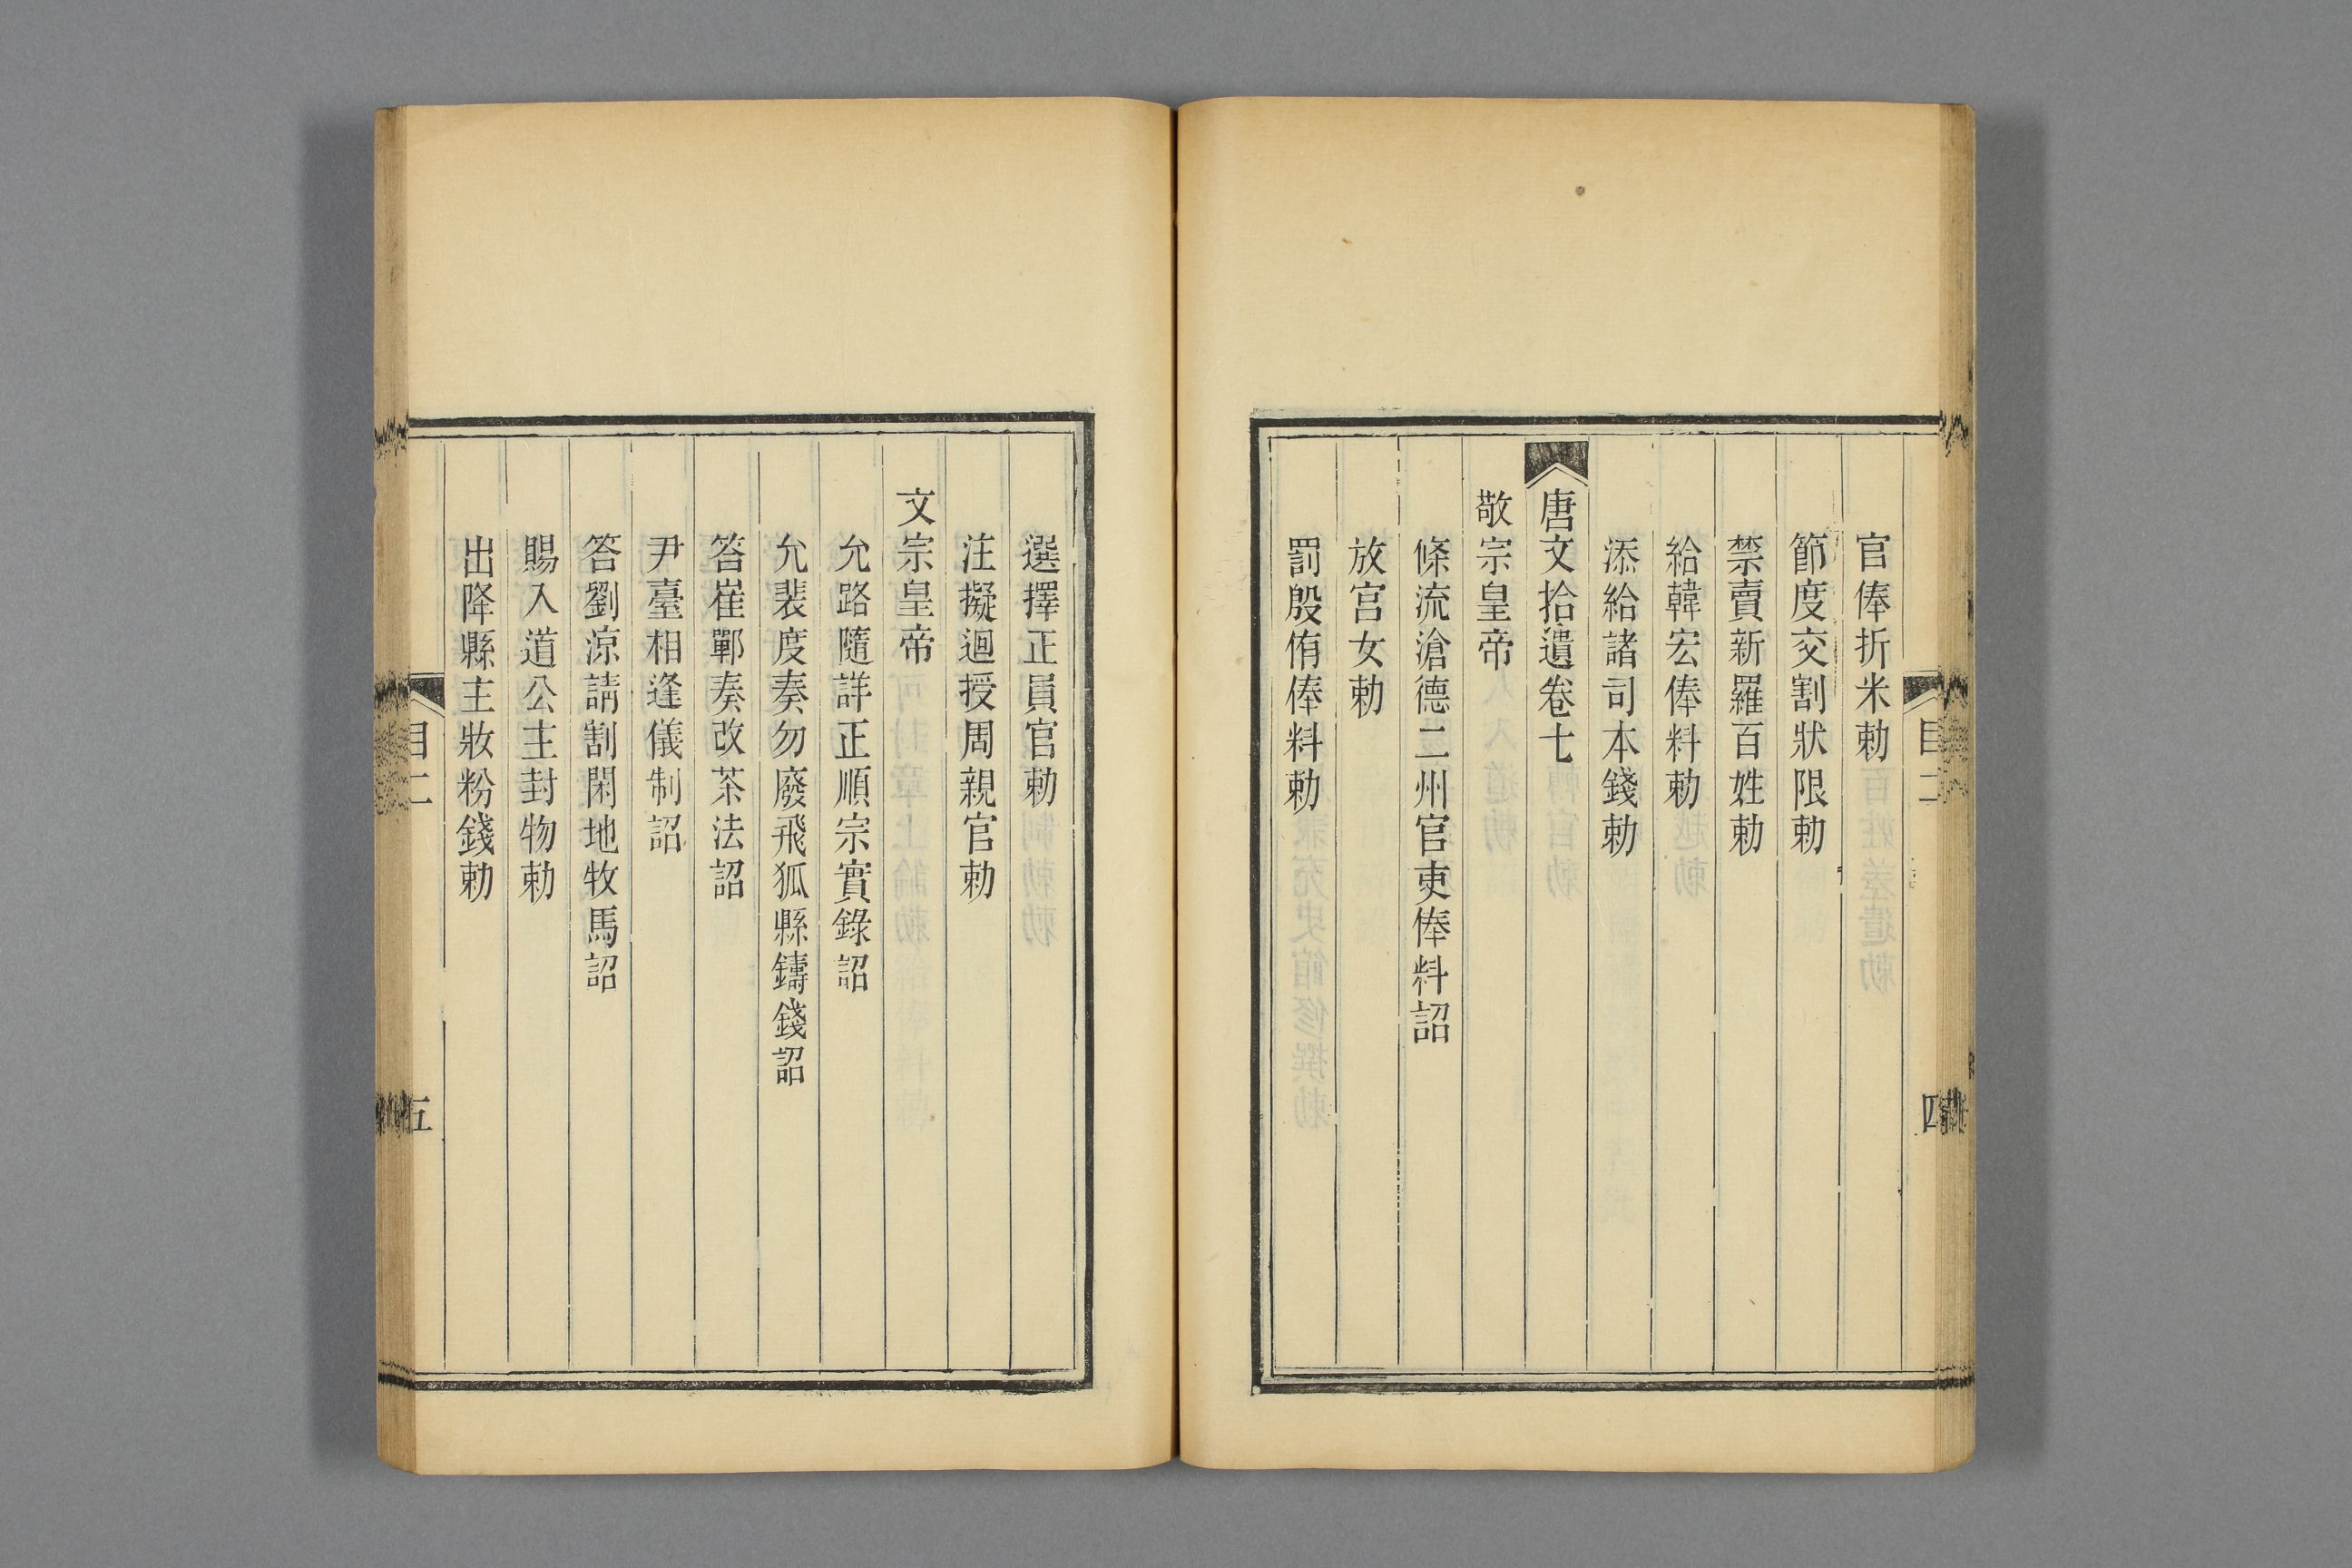 官俸折米勅
節度交割狀限勅
禁賣新羅百姓勅
給韓宏俸料勅
添給諸司本錢勅
唐文拾遺卷七
敬宗皇帝
條流滄德二州官吏俸料詔
放宮女勅
罰殷侑俸料勅
目二
四
選擇正員官勅
注擬迴授周親官勅
文宗皇帝
允路隨詳正順宗實錄詔
允裴度奏勿廢飛狐縣鑄錢詔
答崔鄲奏改茶法詔
尹臺相逢儀制詔
答劉涼請割閑地牧馬詔
賜入道公主封物勅
出降縣主妝粉錢勅
目二
五